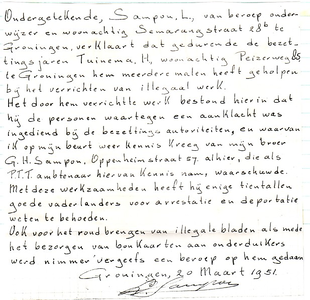 Ondergetekende, Sampon, L., van beroep onder-
wijzer en woonachtig Semarangstraat 28b te
Groningen, verklaart dat gedurende de bezet-
tingsjaren Tuinema, H, woonachtig Peizerweg
te Groningen hem meerdere malen heeft geholpen
bij het verrichten van illegaal werk.
Het door hem verrichtte werk bestond hierin dat
hij de personen waartegen een aanklacht was
ingediend bij de bezettings autoriteiten, en waarvan
ik op mijn beurt weer kennis kreeg van mijn broer
G. H. Sampon. Oppenheimstraat 57. alhier, die als
P.T.T. ambtenaar hiervan kennis nam, waarschuwde.
Met deze werkzaamheden heeft hij enige tientallen
goede vaderlanders voor arrestatie en deportatie
weten te behoeden.
Ook voor het rondbrengen van illegale bladen als mede
het bezorgen van bonkaarten aan onderduikers
werd nimmer vergeefs een beroep op hem gedaan
Groningen, 20 Maart 1951.
L. Sampon